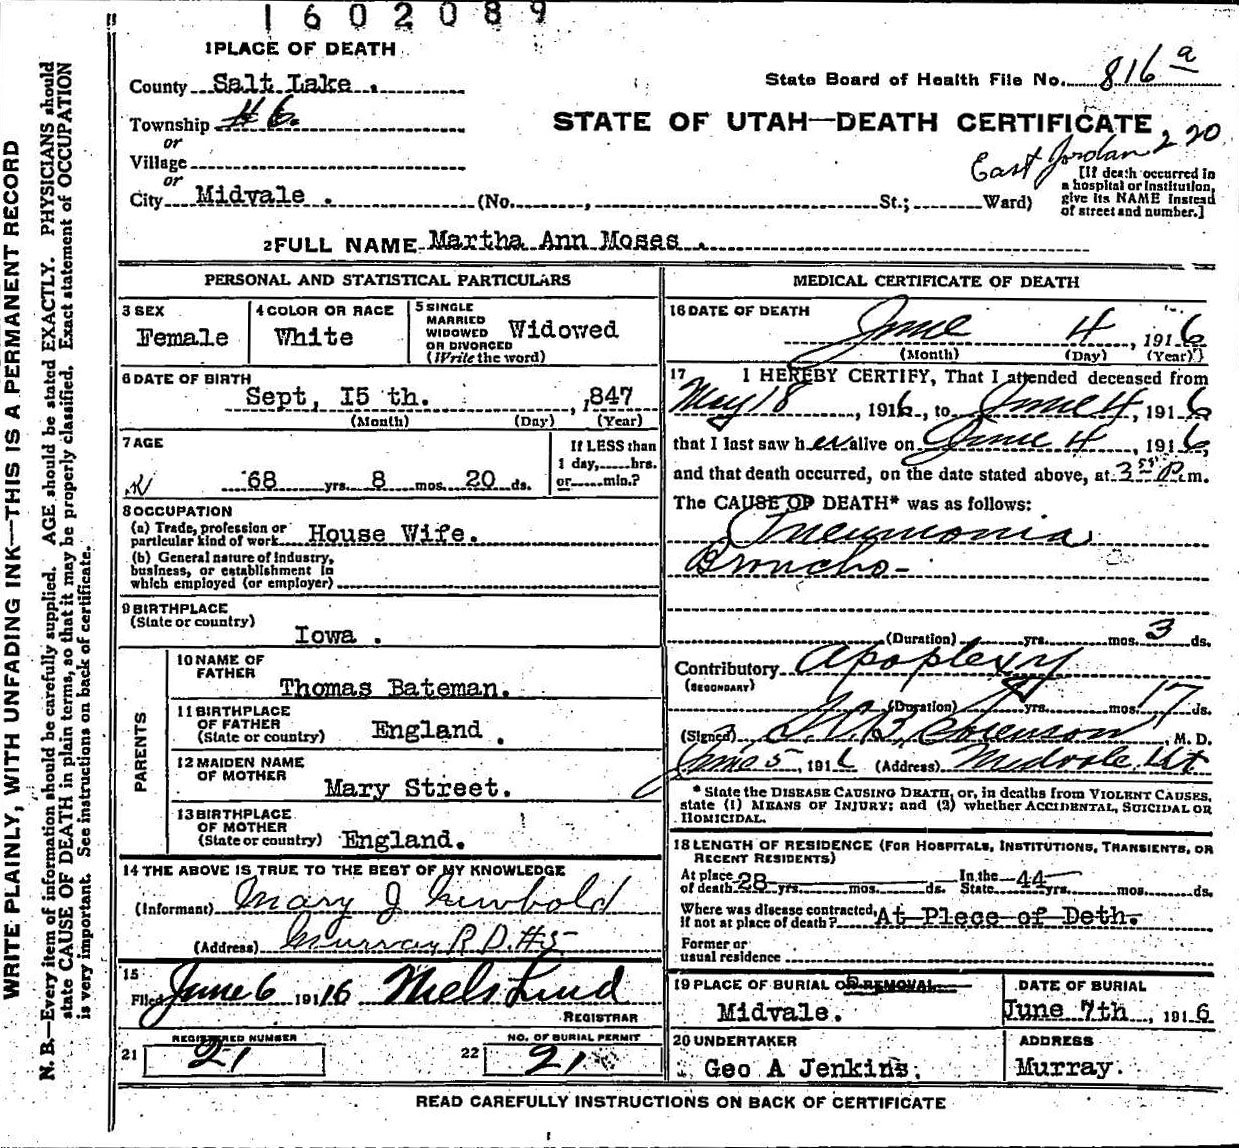 1602089
1 PLACE OF DEATH
County Salt Lake .
State Board of Health File No. 816 a
Township # 6.
STATE OF UTAH—DEATH CERTIFICATE
or
Village
East Jordan 220
or
City Midvale . (No. , St.; Ward)
[If death occurred in
a hospital or institution,
give its NAME instead
of street and number.]
2 FULL NAME Martha Ann Moses .
PERSONAL AND STATISTICAL PARTICULARS
3 SEX
Female
4 COLOR OR RACE
White
5 SINGLE
MARRIED
WIDOWED
OR DIVORCED
(Write the word)
Widowed
6 DATE OF BIRTH
Sept, I5 th. , 1847
(Month) (Day) (Year)
7 AGE
68 yrs. 8 mos. 20 ds.
If LESS than
1 day, hrs.
or min.?
8 OCCUPATION
(a) Trade, profession or
particular kind of work House Wife.
(b) General nature of industry,
business, or establishment in
which employed (or employer)
9 BIRTHPLACE
(State or country)
Iowa .
PARENTS
10 NAME OF
FATHER
Thomas Bateman.
11 BIRTHPLACE
OF FATHER
(State or country) England .
12 MAIDEN NAME
OF MOTHER
Mary Street.
13 BIRTHPLACE
OF MOTHER
(State or country) England.
14 THE ABOVE IS TRUE TO THE BEST OF MY KNOWLEDGE
(Informant) Mary J Newbold
(Address) Murray R D #5
15
Filed June 6 191 16 Niels Lind
REGISTRAR
21 REGISTERED NUMBER
21
22 NO. OF BURIAL PERMIT
21
MEDICAL CERTIFICATE OF DEATH
16 DATE OF DEATH
June 4 , 1916
(Month) (Day) (Year)
17 I HEREBY CERTIFY, That I attended deceased from
May 18 , 1916, to June 4, 1916
that I last saw her alive on June 4 , 1916,
and that death occurred, on the date stated above, at 3 55 P.m.
The CAUSE OF DEATH* was as follows:
Pneumonia
Broncho-
(Duration) yrs. mos. 3 ds.
Contributory Apoplexy
(SECONDARY)
(Duration) yrs. mos. 17 ds.
(Signed) Sorenson, M. D.
June 5, 1916 (Address) Midvale, Ut
* State the DISEASE CAUSING DEATH, or, in deaths from VIOLENT CAUSES,
state (1) MEANS OF INJURY; and (2) whether ACCIDENTAL, SUICIDAL OR
HOMICIDAL.
18 LENGTH OF RESIDENCE (FOR HOSPITALS, INSTITUTIONS, TRANSIENTS, OR
RECENT RESIDENTS)
At place
of death 28 yrs. mos. ds. In the
State 44 yrs. mos. ds.
Where was disease contracted,
if not at place of death? At Plece of Deth.
Former or
usual residence
19 PLACE OF BURIAL OR REMOVAL
Midvale.
DATE OF BURIAL
June 7th , 1916
20 UNDERTAKER
Geo A Jenkins.
ADDRESS
Murray.
READ CAREFULLY INSTRUCTIONS ON BACK OF CERTIFICATE
WRITE PLAINLY, WITH UNFADING INK—THIS IS A PERMANENT RECORD
N. B.—Every item of information should be carefully supplied. AGE should be stated EXACTLY. PHYSICIANS should
state CAUSE OF DEATH in plain terms, so that it may be properly classified. Exact statement of OCCUPATION
is very important. See instructions on back of certificate.